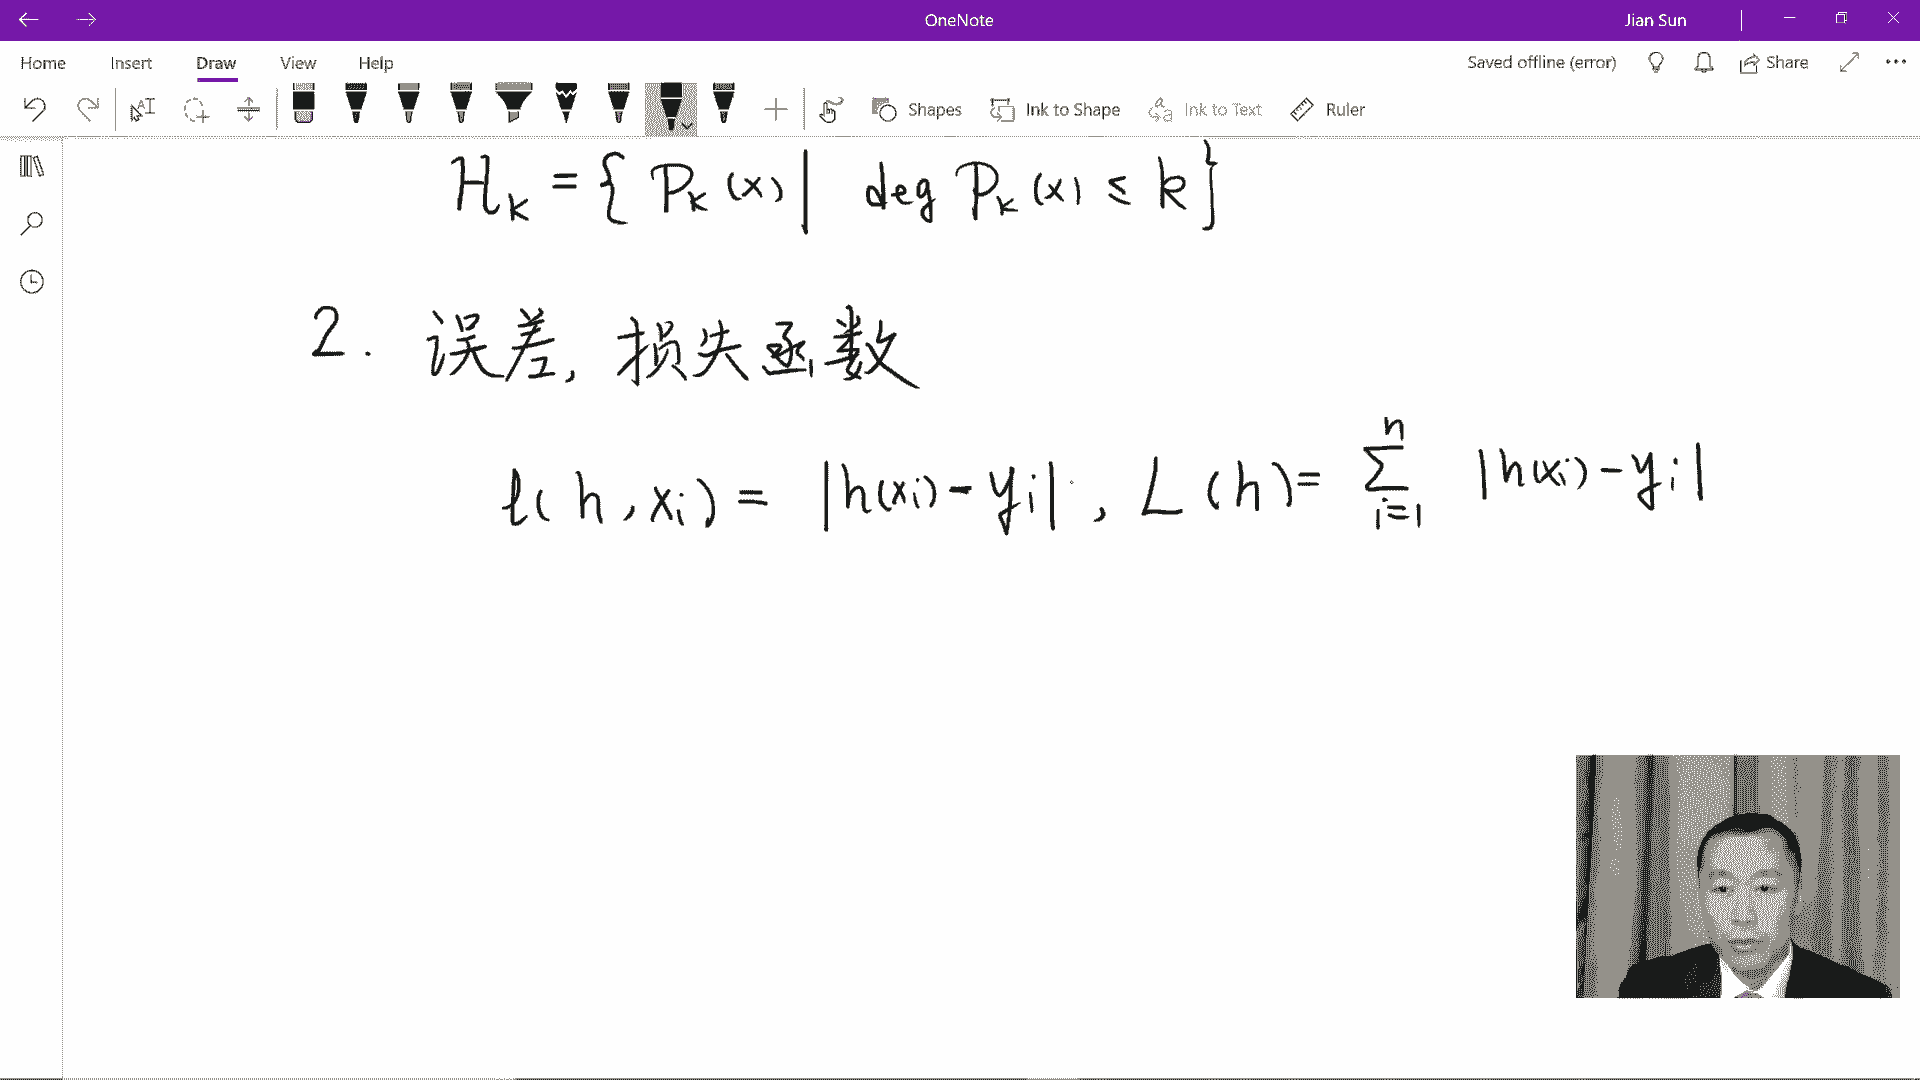 OneNote
Jian Sun
Home Insert Draw View Help
Saved offline (error)
Share
Shapes
Ink to Shape
Ink to Text
Ruler
H_k = { P_k (x) | deg P_k (x) ≤ k }
2. 误差, 损失函数
ℓ( h , x_i ) = |h(x_i) - y_i| , L (h) = ∑_{i=1}^{n} |h(x_i) - y_i|